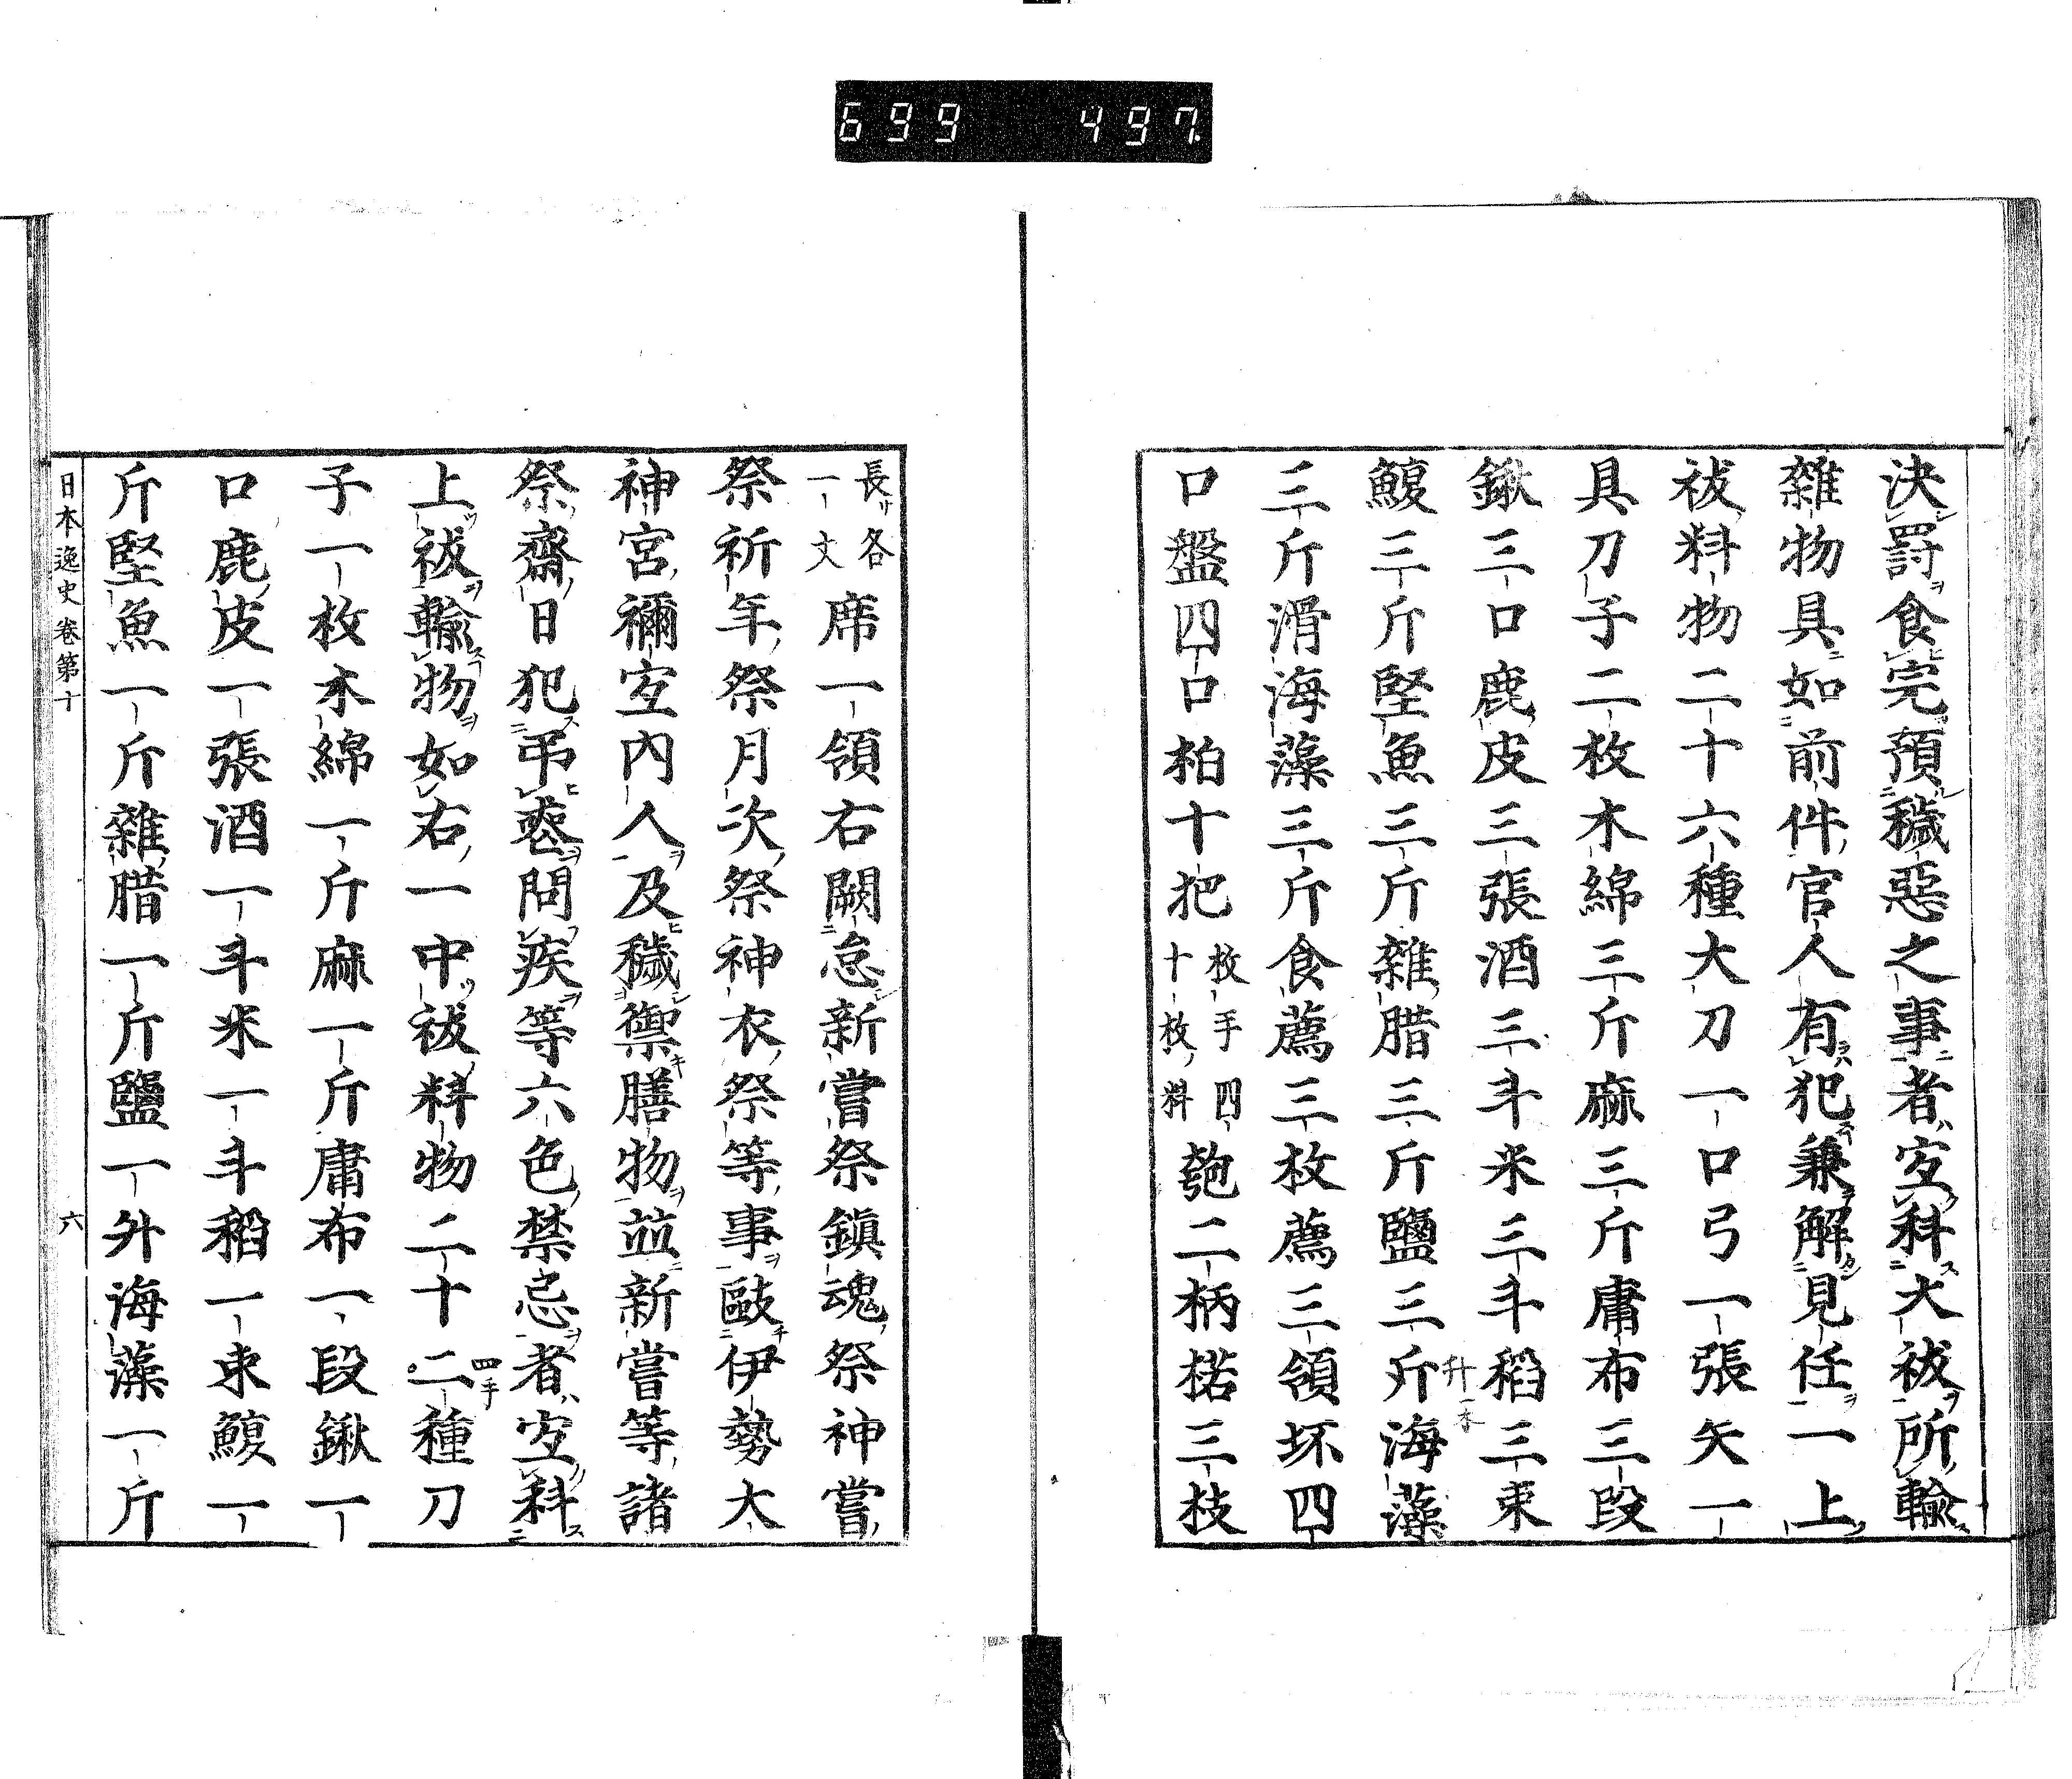 699 497
決罰食完預穢惡之事者宜科大祓所輸
雜物具如前件官人有犯兼解見任一上
祓料物二十六種大刀一口弓一張矢一
具刀子二枚木綿三斤麻三斤庸布三段
鍬三口鹿皮三張酒三斗米三斗稻三束
鰒三斤堅魚三斤雜腊三斤鹽三斤海藻
升一本
三斤滑海藻三斤食薦三枚薦三領坏四
口盤四口柏十把枚手四十枚料匏二柄楉三枝
長各一丈席一領右闕怠新嘗祭鎮魂祭神嘗
祭祈年祭月次祭神衣祭等事毆伊勢大
神宮禰宜內人及穢禦膳物並新嘗等諸
祭齋日犯弔喪問疾等六色禁忌者宜科
上祓輸物如右一中祓料物二十二種刀
四手
子一枚木綿一斤麻一斤庸布一段鍬一
口鹿皮一張酒一斗米一斗稻一束鰒一
斤堅魚一斤雜腊一斤鹽一升海藻一斤
日本逸史卷第十 六